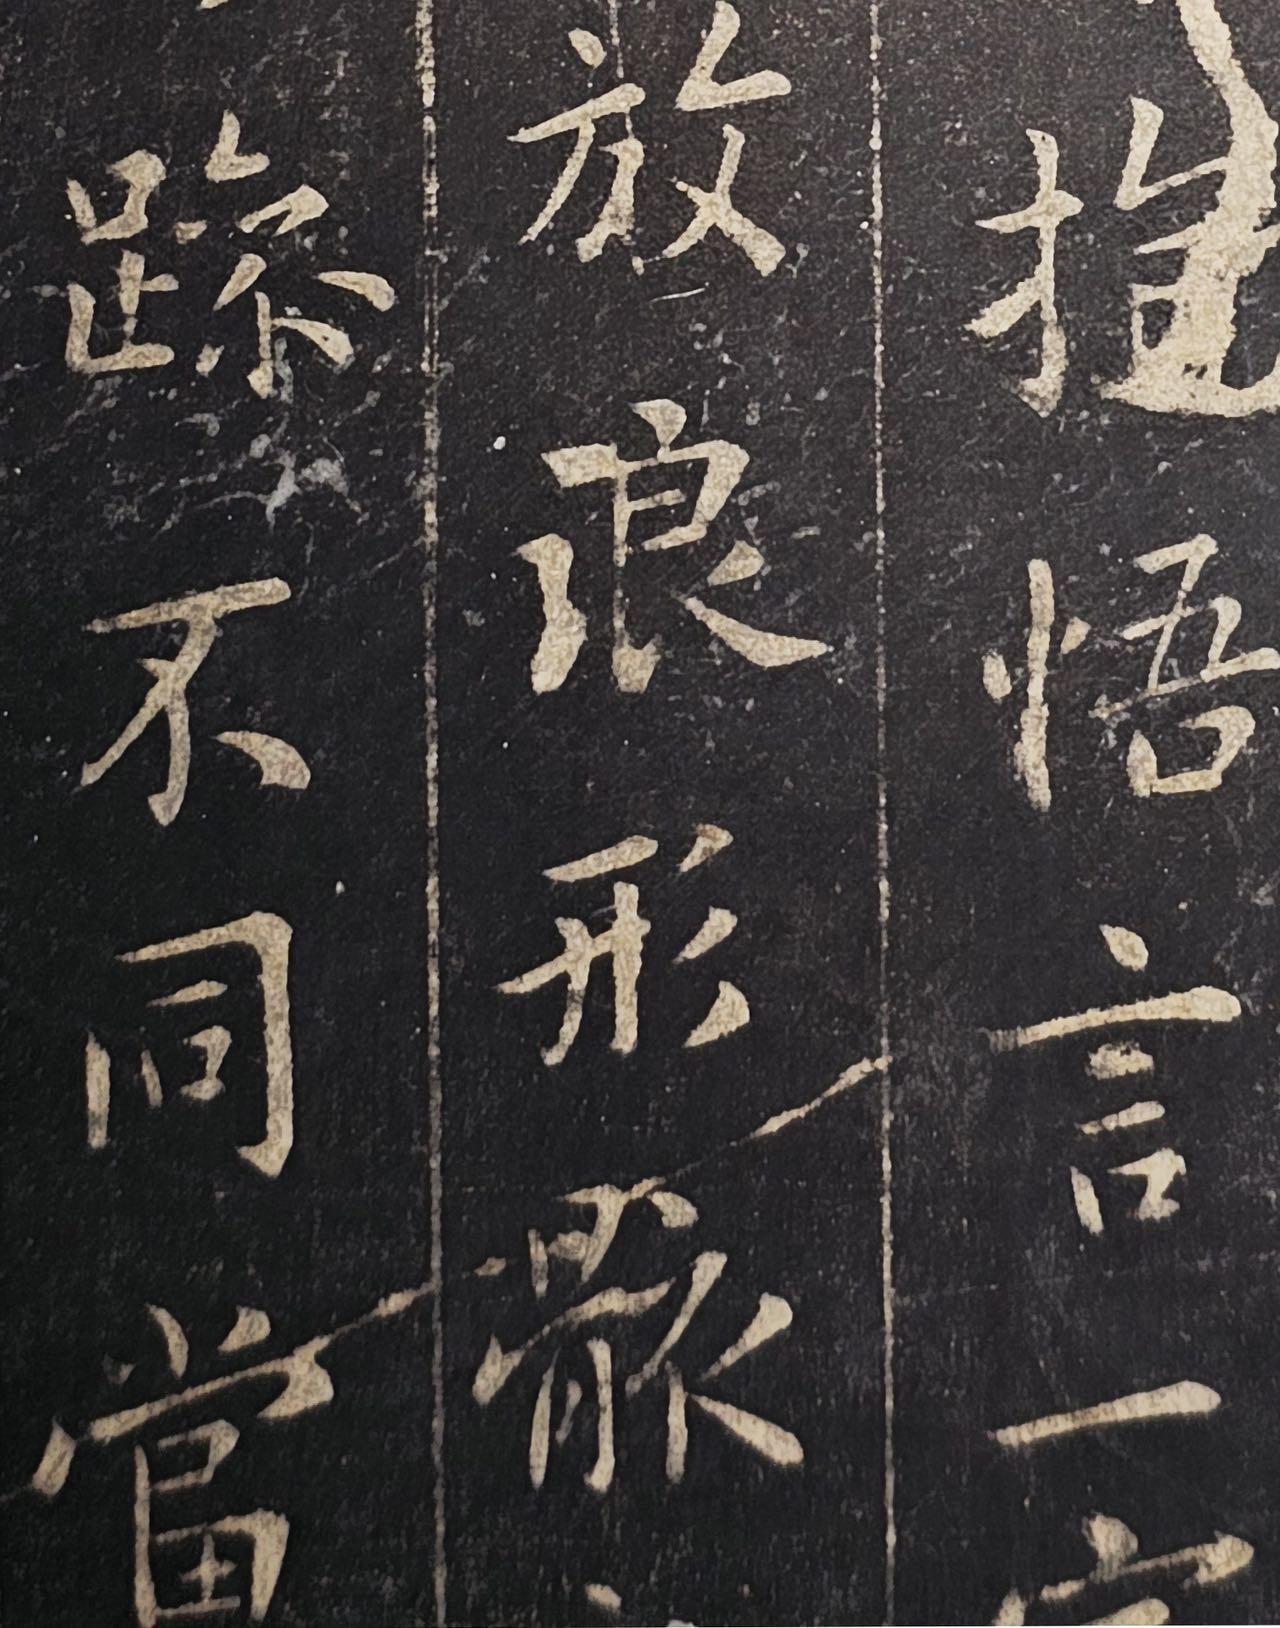 抱悟言一
放浪形骸
躁不同當